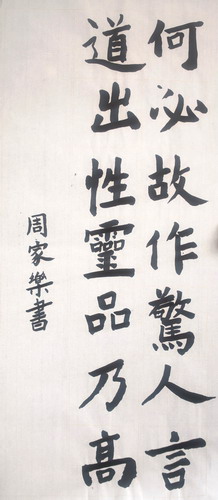 何必故作驚人言
道出性靈品乃高
周家樂書